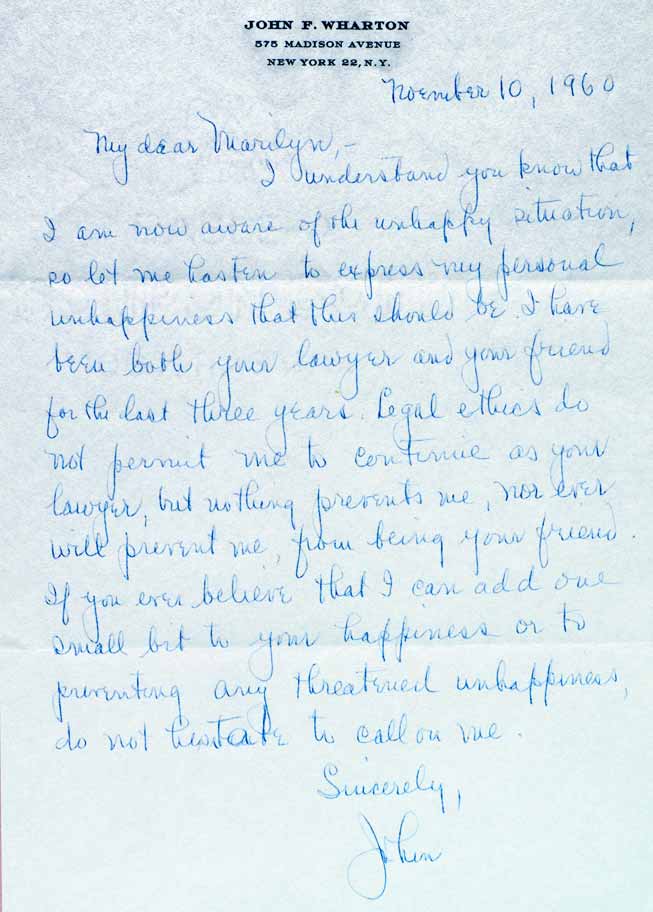 JOHN F. WHARTON
575 MADISON AVENUE
NEW YORK 22, N.Y.
Noember 10, 1960
My dear Marilyn,-
I understand you know that
I am now aware of the unhappy situation,
so let me hasten to express my personal
unhappiness that this should be. I have
been both your lawyer and your friend
for the last three years. Legal ethics do
not permit me to continue as your
lawyer, but nothing prevents me, nor ever
will prevent me, from being your friend.
If you ever believe that I can add one
small bit to your happiness or to
preventing any threatened unhappiness,
do not hesitate to call on me.
Sincerely,
John